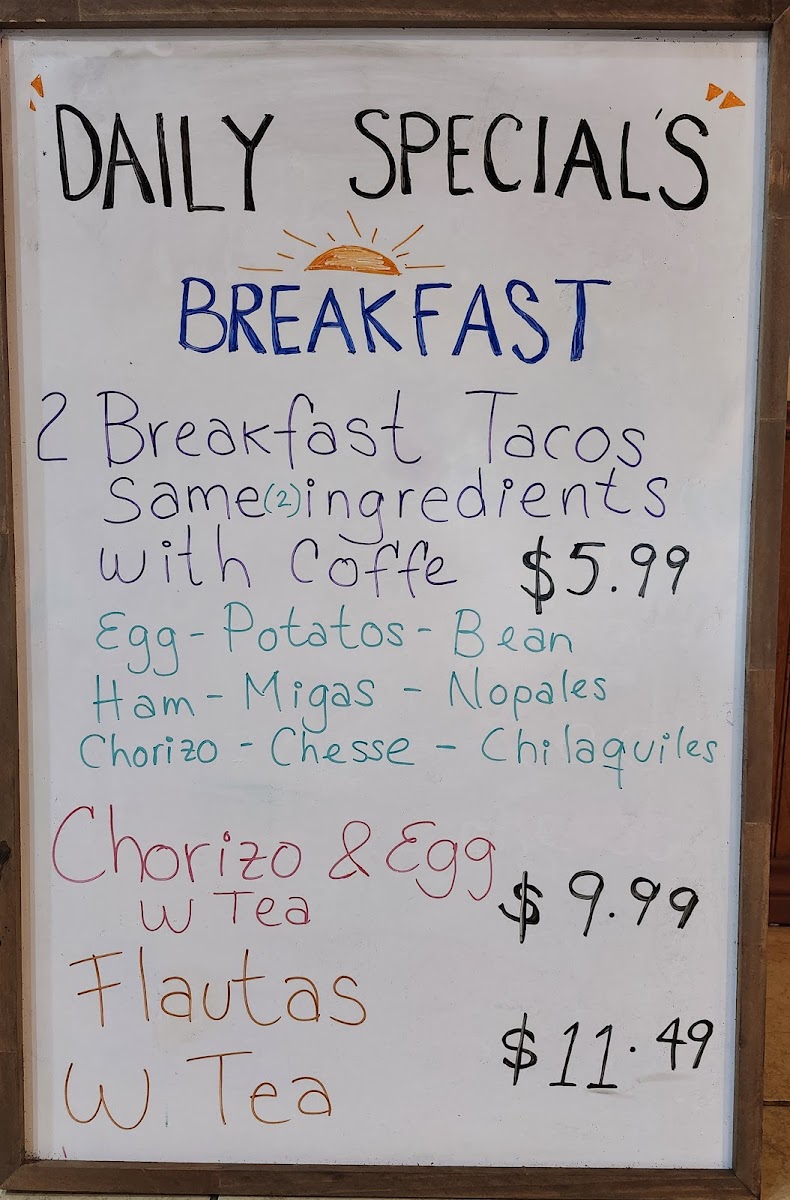 "DAILY SPECIAL'S"
BREAKFAST
2 Breakfast Tacos
Same (2) ingredients
with Coffe $5.99
Egg - Potatos - Bean
Ham - Migas - Nopales
Chorizo - Chesse - Chilaquiles
Chorizo & Egg
W Tea $9.99
Flautas
W Tea $11.49